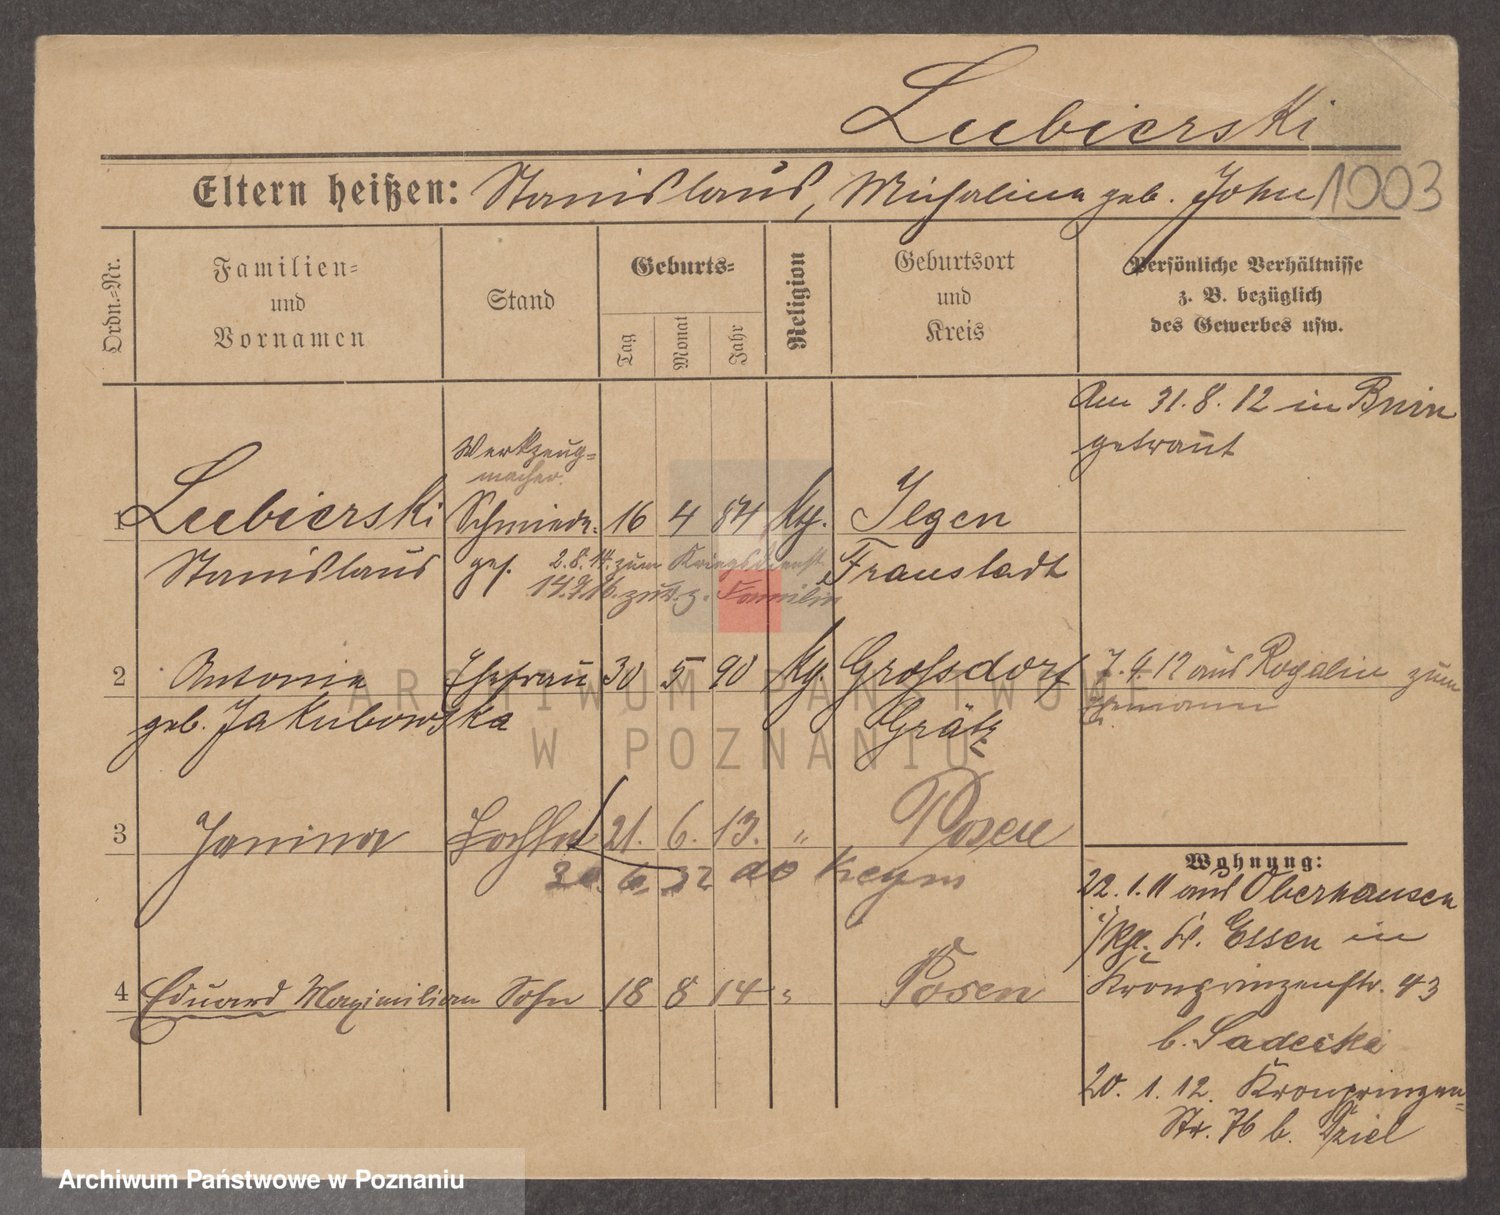 Lubierski
Eltern heißen: Stanislaus, Michalina geb. John 1003
Ordn.-Nr.
Familien-
und
Vornamen
Stand
Geburts-
Tag
Monat
Jahr
Religion
Geburtsort
und
Kreis
Persönliche Verhältnisse
z. B. bezüglich
des Gewerbes usw.
Am 31.8.12 in Bnin
getraut
Werkzeug-
macher.
1 Lubierski Schmiede- 16 4 84 kg. Ilgen
Stanislaus ges. 2.8.14. zum Kriegsdienst Fraustadt
14.9.16. zur. z. Familie
2 Antonie Ehefrau 30 5 90 kg. Grofsdorf 7.9.12 aus Rogalin zum
geb. Jakubowska Grätz Ehemann
3 Janina Tochter 21. 6. 13. " Posen
do Keym
4 Eduard Maximilian Sohn 18 8 14 " Posen
Wohnung:
22.1.11 aus Oberhausen
Essen in
Kronprinzenstr. 93
b. Sadecki
20.1.12. Kronprinzen-
Str. 76 b. Dziel
ARCHIWUM PAŃSTWOWE
W POZNANIU
Archiwum Państwowe w Poznaniu